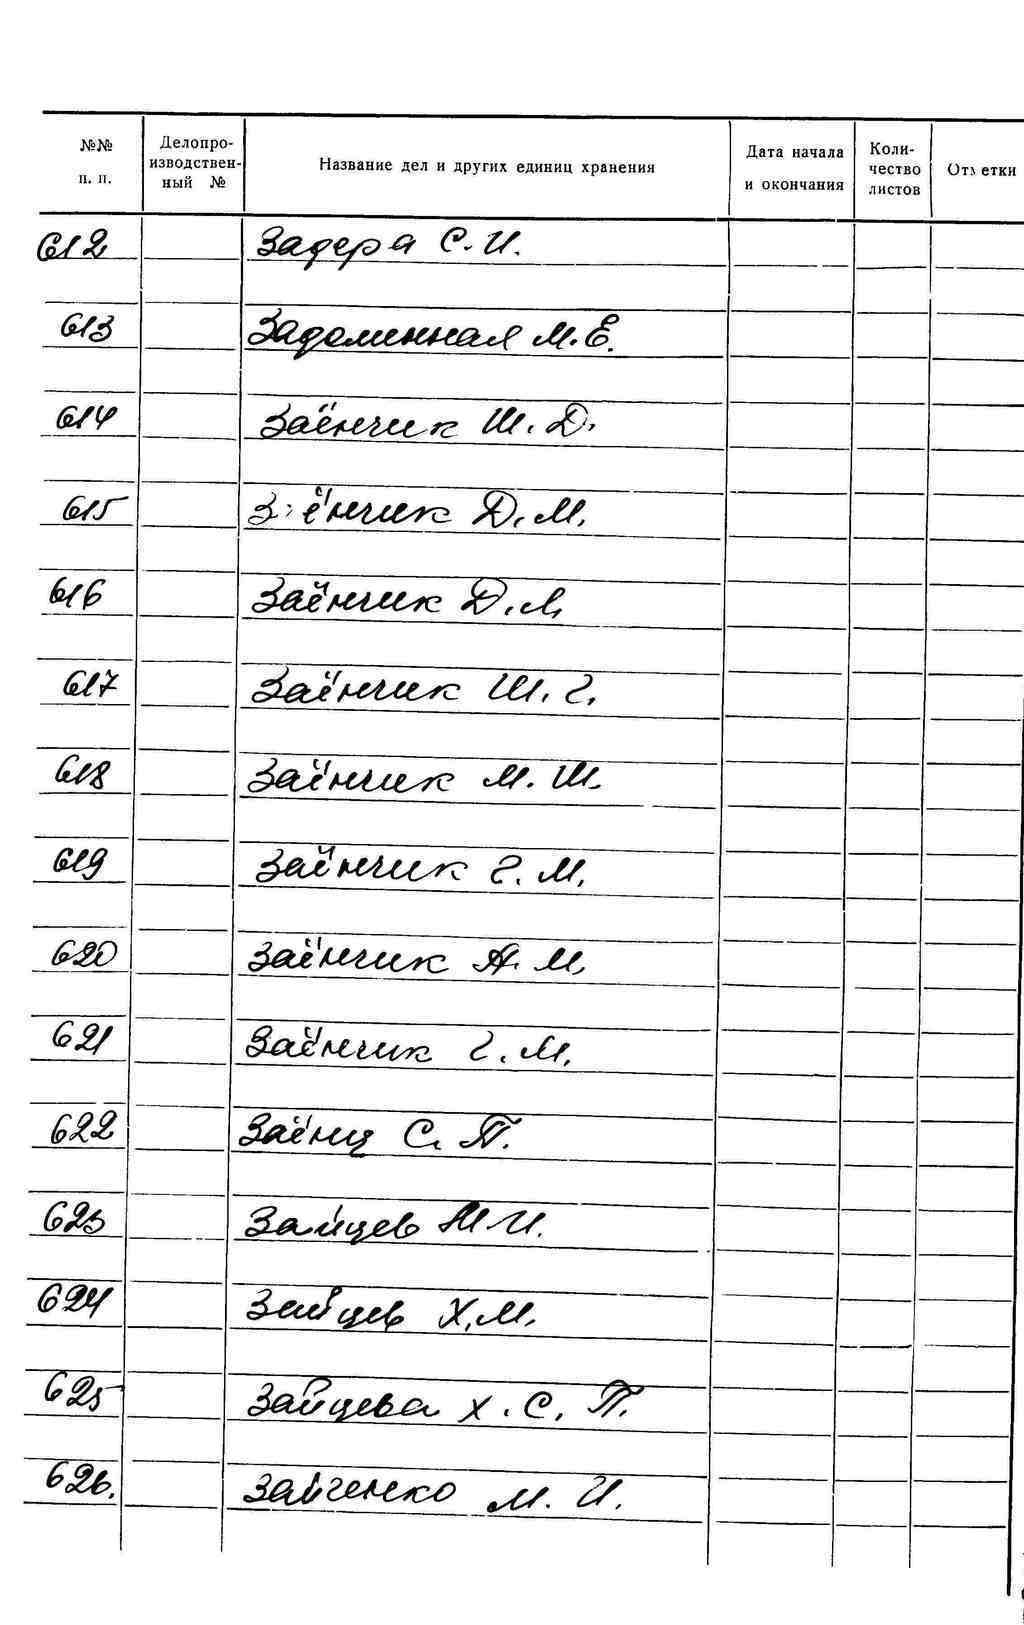 №№ п. п.
Делопро-
изводствен-
ный №
Название дел и других единиц хранения
Дата начала
и окончания
Коли-
чество
листов
От етки
612 Задера С. И.
613 Задолинная М. Е.
614 Заёнчик Ш. Д.
615 З ёнчик Д. М.
616 Заёнчик Д. М
617 Заёнчик Ш. Г.
618 Заёнчик М. Ш.
619 Заёнчик Г. М.
620 Заёнчик А. М.
621 Заёнчик Г. М.
622 Заёнц С. П.
623 Зайцев И.
624 Зайцев Х. М.
625 Зайцева Х. С. П.
626. Зайченко М. И.